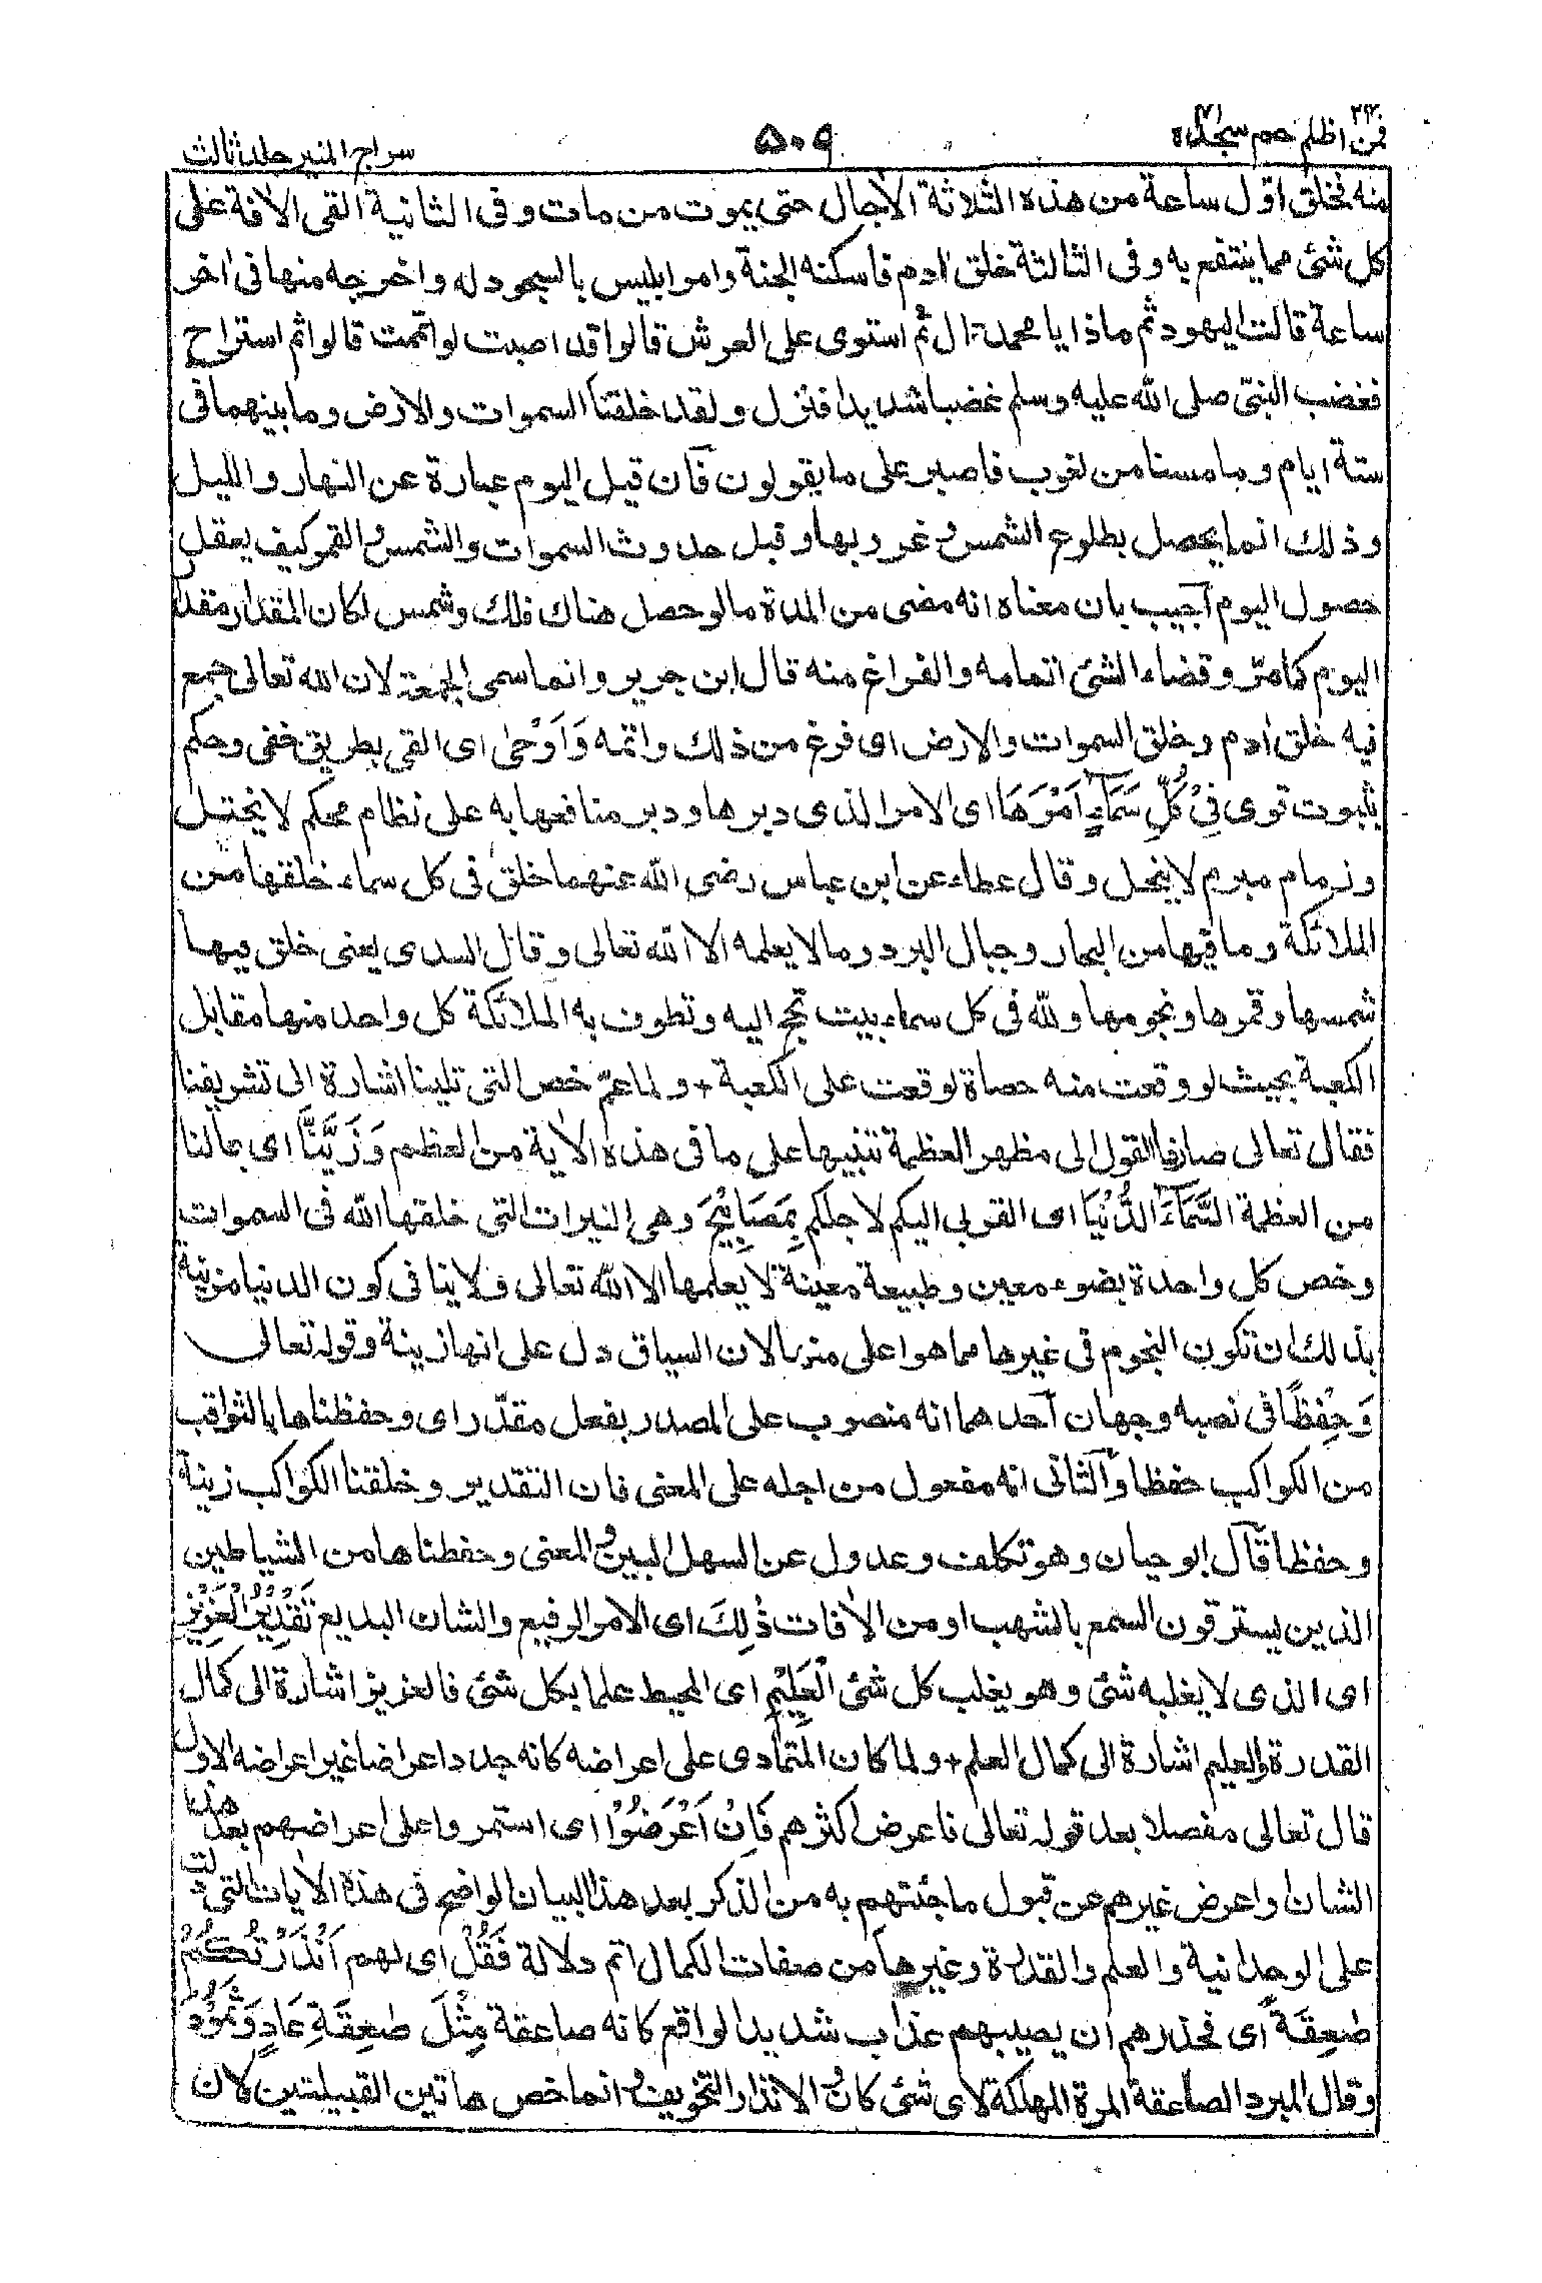 فمن اظلم ٢٤ حم سجدة ٤١
۵۰۹
سراج المنير جلد ثالث
منه فخلق اوّل ساعة من هذه الثلاثة الاٰجال حتى يموت من مات وفى الثانية القى الاٰفة على
كل شئ مما ينتفع به وفى الثالثة خلق اٰدم فاسكنه الجنة وامر ابليس بالسجود له واخرجه منها فى اٰخر
ساعة قالت اليهود ثم ماذا يا محمد قال ثم استوى على العرش قالوا قد اصبت لو اتممت قالوا ثم استراح
فغضب النبىّ صلى الله عليه وسلم غضبا شديدا فنزل ولقد خلقنا السموات والارض وما بينهما فى
ستة ايام وما مسنا من لغوب فاصبر على ما يقولون فآن قيل اليوم عبارة عن النهار والليل
وذلك انما يحصل بطلوع الشمس وغروبها وقبل حدوث السموات والشمس والقمر كيف يعقل
حصول اليوم آجيب بان معناه انه مضى من المدة ما لو حصل هناك فلك وشمس لكان المقدار مقدرا
اليوم كما مرّ وقضاء الشئ اتمامه والفراغ منه قال ابن جرير وانما سمى الجمعة لان الله تعالى جمع
فيه خلق اٰدم وخلق السموات والارض اى فرغ من ذلك واتمه وَاَوْحٰى اى القى بطريق خفى وحكم
بثبوت توى فِىْ كُلِّ سَمَآءٍ اَمْرَهَا اى الامر الذى دبرها ودبر منافعها به على نظام محكم لا يختل
وزمام مبرم لا ينحل وقال عطاء عن ابن عباس رضى الله عنهما خلق فى كل سماء خلقها من
الملائكة وما فيها من البحار وجبال البرد وما لا يعلمه الا الله تعالى وقال السدى يعنى خلق فيها
شمسها وقمرها ونجومها ولله فى كل سماء بيت تحج اليه وتطوف به الملائكة كل واحد منها مقابل
الكعبة بحيث لو وقعت منه حصاة لوقعت على الكعبة + ولما عمّ خص التى تلينا اشارة الى تشريفنا
فقال تعالى صارفا القول الى مظهر العظمة تنبيها على ما فى هذه الاٰية من العظم وَزَيَّنَّا اى بمالنا
من العظمة السَّمَآءَ الدُّنْيَا اى القربى اليكم لاجلكم بِمَصَابِيْحَ وهى النيرات التى خلقها الله فى السموات
وخص كل واحدة بضوء معين وطبيعة معينة لا يعلمها الا الله تعالى ولا ينافى كون الدنيا مزينة
بذلك ان تكون النجوم فى غيرها مما هو اعلى منها لان السياق دل على انها زينة وقوله تعالى
وَحِفْظًا فى نصبه وجهان آحدهما انه منصوب على المصدر بفعل مقدّر اى وحفظناها بالثواقب
من الكواكب حفظا وآلثانى انه مفعول من اجله على المعنى فان التقدير وخلقنا الكواكب زينة
وحفظا قآل ابو حيان وهو تكلف وعدول عن السهل البين والمعنى وحفظناها من الشياطين
الذين يسترقون السمع بالشهب او من الاٰفات ذٰلِكَ اى الامر الرفيع والشان البديع تَقْدِيْرُ الْعَزِيْزِ
اى الذى لا يغلبه شئ وهو يغلب كل شئ الْعَلِيْمِ اى المحيط علما بكل شئ فالعزيز اشارة الى كمال
القدرة والعليم اشارة الى كمال العلم + ولما كان المتمادى على اعراضه كانه جدد اعراضا غير اعراضه الاول
قال تعالى مفصلا بعد قوله تعالى فاعرض اكثرهم فَاِنْ اَعْرَضُوْا اى استمروا على اعراضهم بعد هذا
الشان او اعرض غيرهم عن قبول ما جئتهم به من الذكر بعد هذا البيان الواضح فى هذه الاٰيات التى دلت
على الوحدانية والعلم والقدرة وغيرها من صفات الكمال اتم دلالة فَقُلْ اى لهم اَنْذَرْتُكُمْ
صٰعِقَةً اى فحذرهم ان يصيبهم عذاب شديد الواقع كانه صاعقة مِثْلَ صٰعِقَةِ عَادٍ وَّثَمُوْدَ
وقال المبرد الصاعقة المرة المهلكة لاى شئ كان والانذار التخويف وانما خص هاتين القبيلتين لان